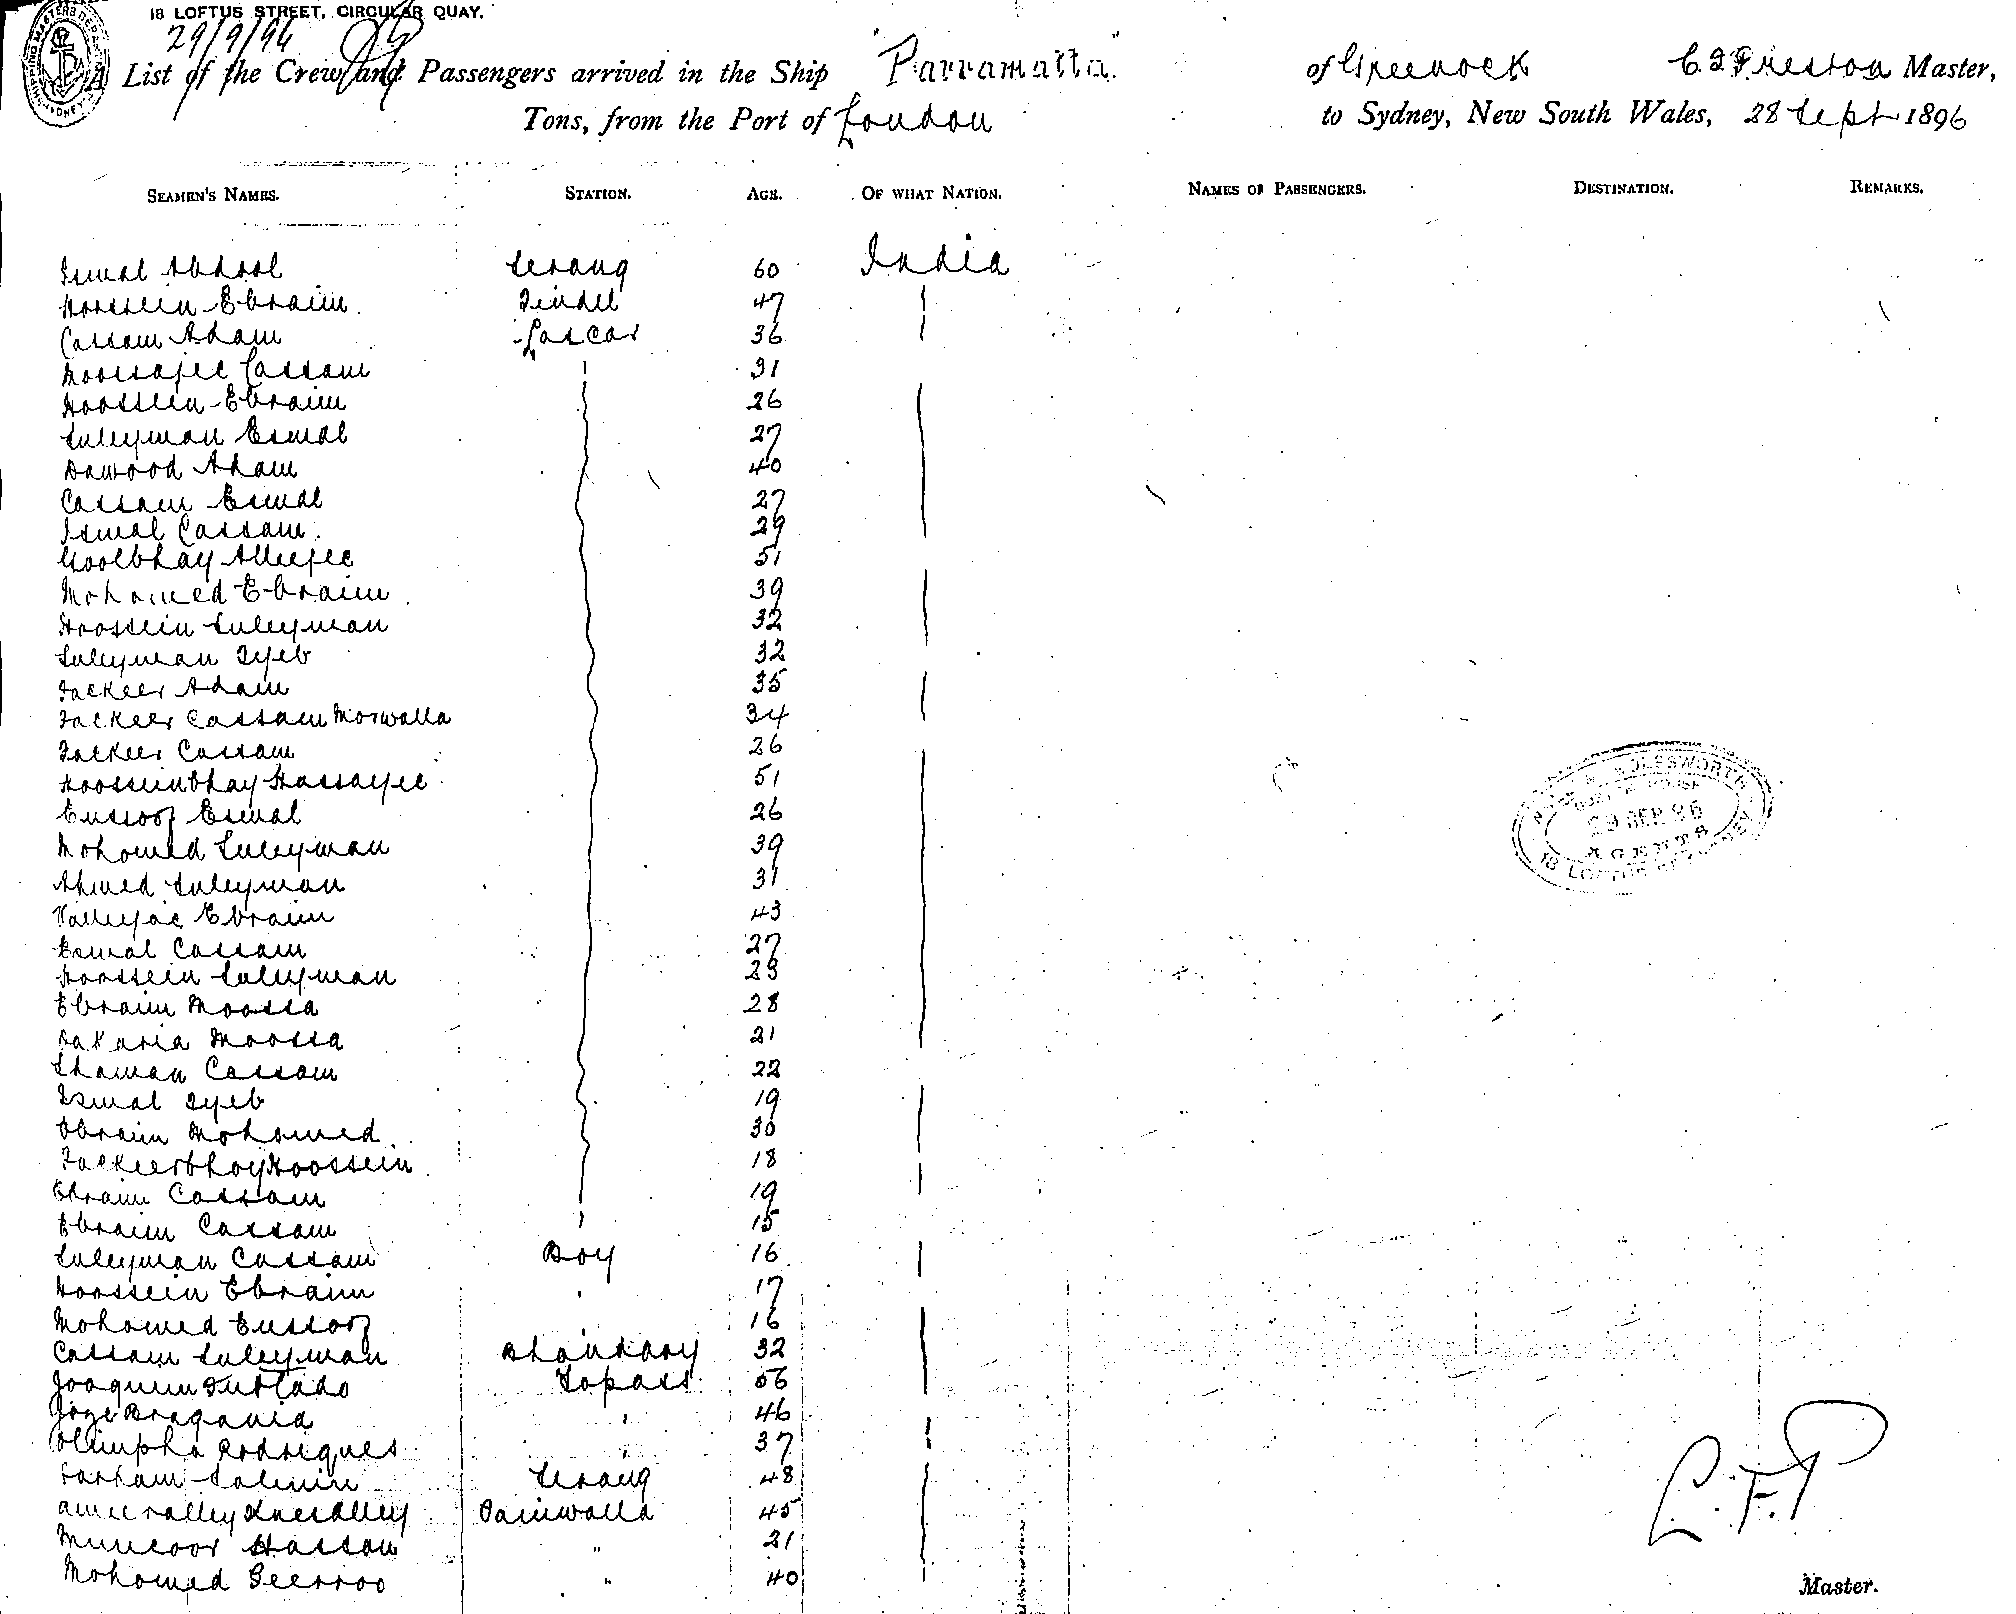 18 LOFTUS STREET, CIRCULAR QUAY.
29/9/96
A List of the Crew and Passengers arrived in the Ship "Parramatta" of Greenock C. F. Preston Master,
Tons, from the Port of London to Sydney, New South Wales, 28 Sept 1896
SEAMEN'S NAMES. STATION. AGE. OF WHAT NATION. NAMES OF PASSENGERS. DESTINATION. REMARKS.
Ismal Abdool Serang 60 India
Hoossein Ebraim Tindel 47
Cassam Adam Lascar 36
Moossajee Cassam 31
Hoossein Ebraim 26
Suleyman Esmal 27
Dawood Adam 40
Cassam Esmal 27
Ismal Cassam 29
Goolbhay Alleejee 51
Mohomed Ebraim 39
Hoossein Suleyman 32
Suleyman Tyeb 32
Fackeer Adam 35
Fackeer Cassam Morwalla 34
Fackeer Cassam 26
Hoosseinbhay Hassajee 51
Eussoof Esmal 26
Mohomed Suleyman 39
Ahmed Suleyman 31
Valleejee Ebraim 43
Esmal Cassam 27
Hoossein Suleyman 23
Ebraim Moossa 28
Sakaria Moossa 21
Shaman Cassam 22
Ismal Tyeb 19
Ebraim Mohomed 30
Fackeerbhoy Hoossein 18
Ebraim Cassam 19
Ebraim Cassam 15
Suleyman Cassam Boy 16
Hoossein Ebraim 17
Mohomed Eussoof 16
Cassam Suleyman Bhandary 32
Joaquim Furtado Topass 56
Joze Braganza "  46
Olimpho Rodrigues " 37
Serang 48
Paniwalla 45
Hassan " 21
Mohomed " 40
29 SEP 96
AGENTS
18 LOFTUS
C.F.P
Master.